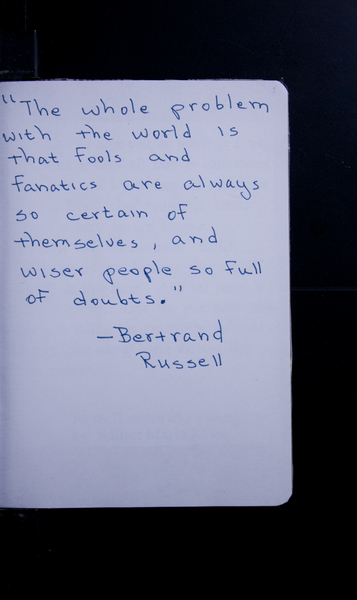 "The whole problem
with the world is
that fools and
fanatics are always
so certain of
themselves, and
wiser people so full
of doubts."
—Bertrand
Russell